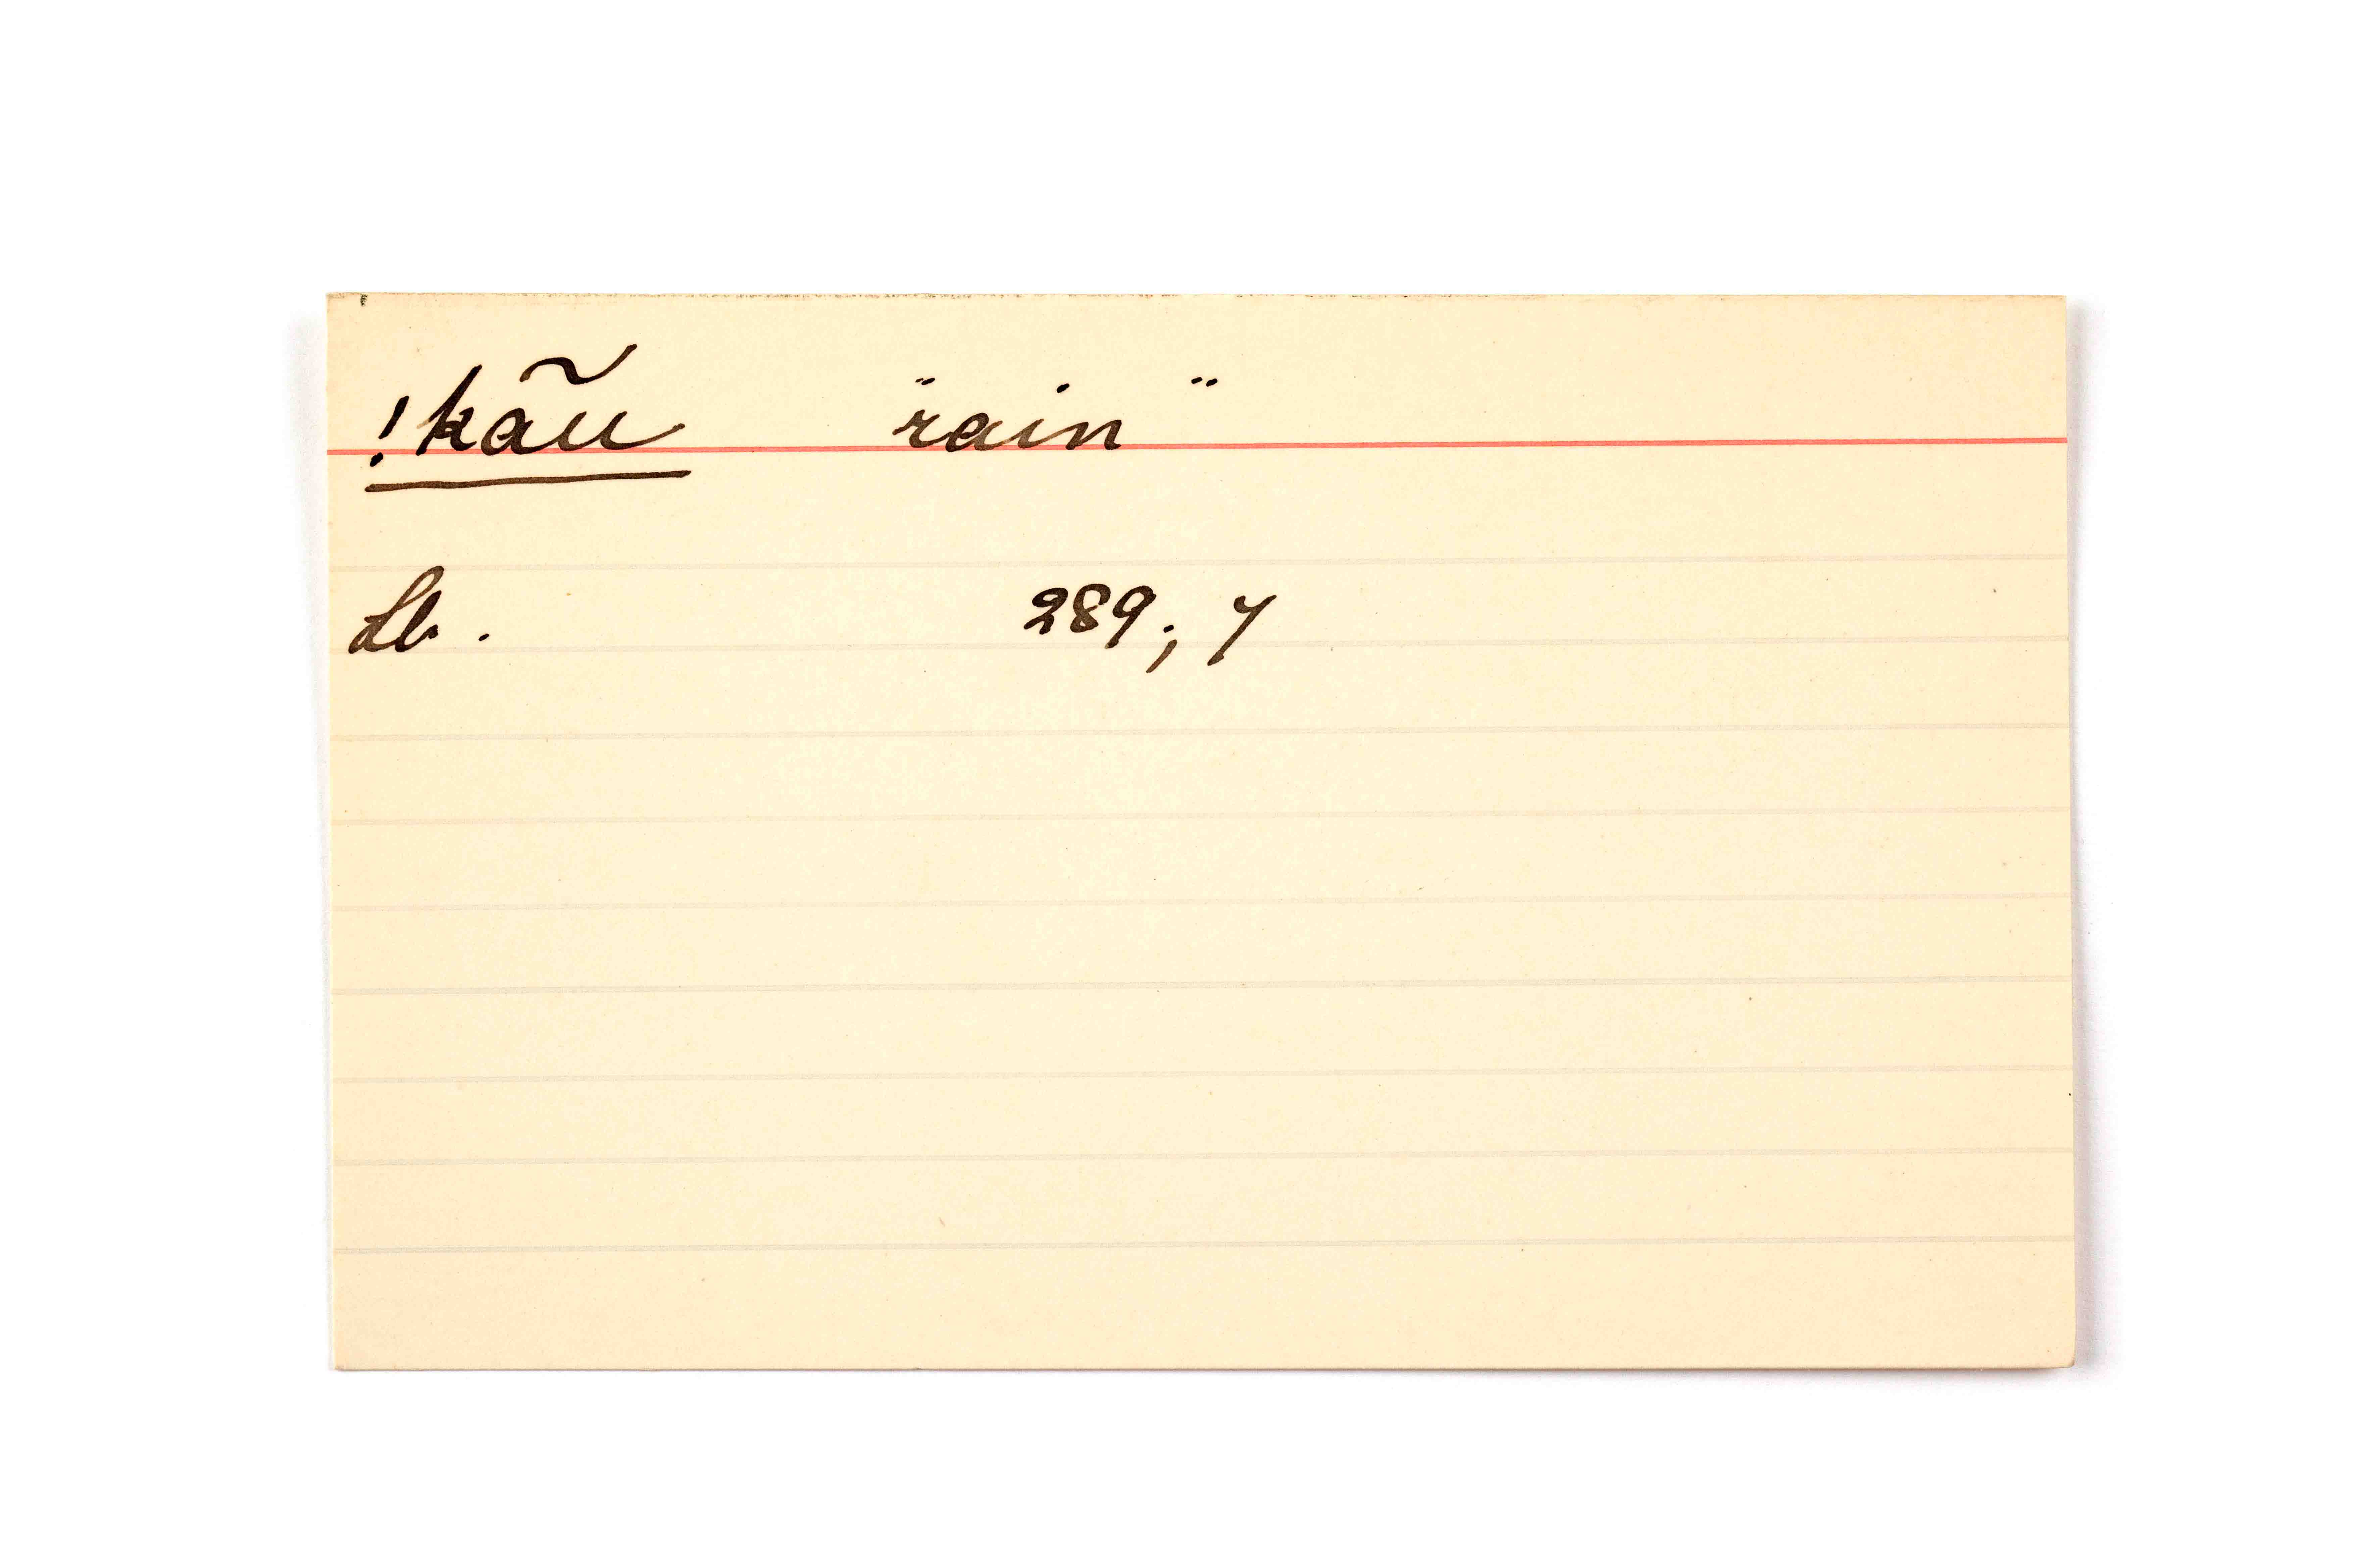 !kãu "rain"
Lb. 289; 7